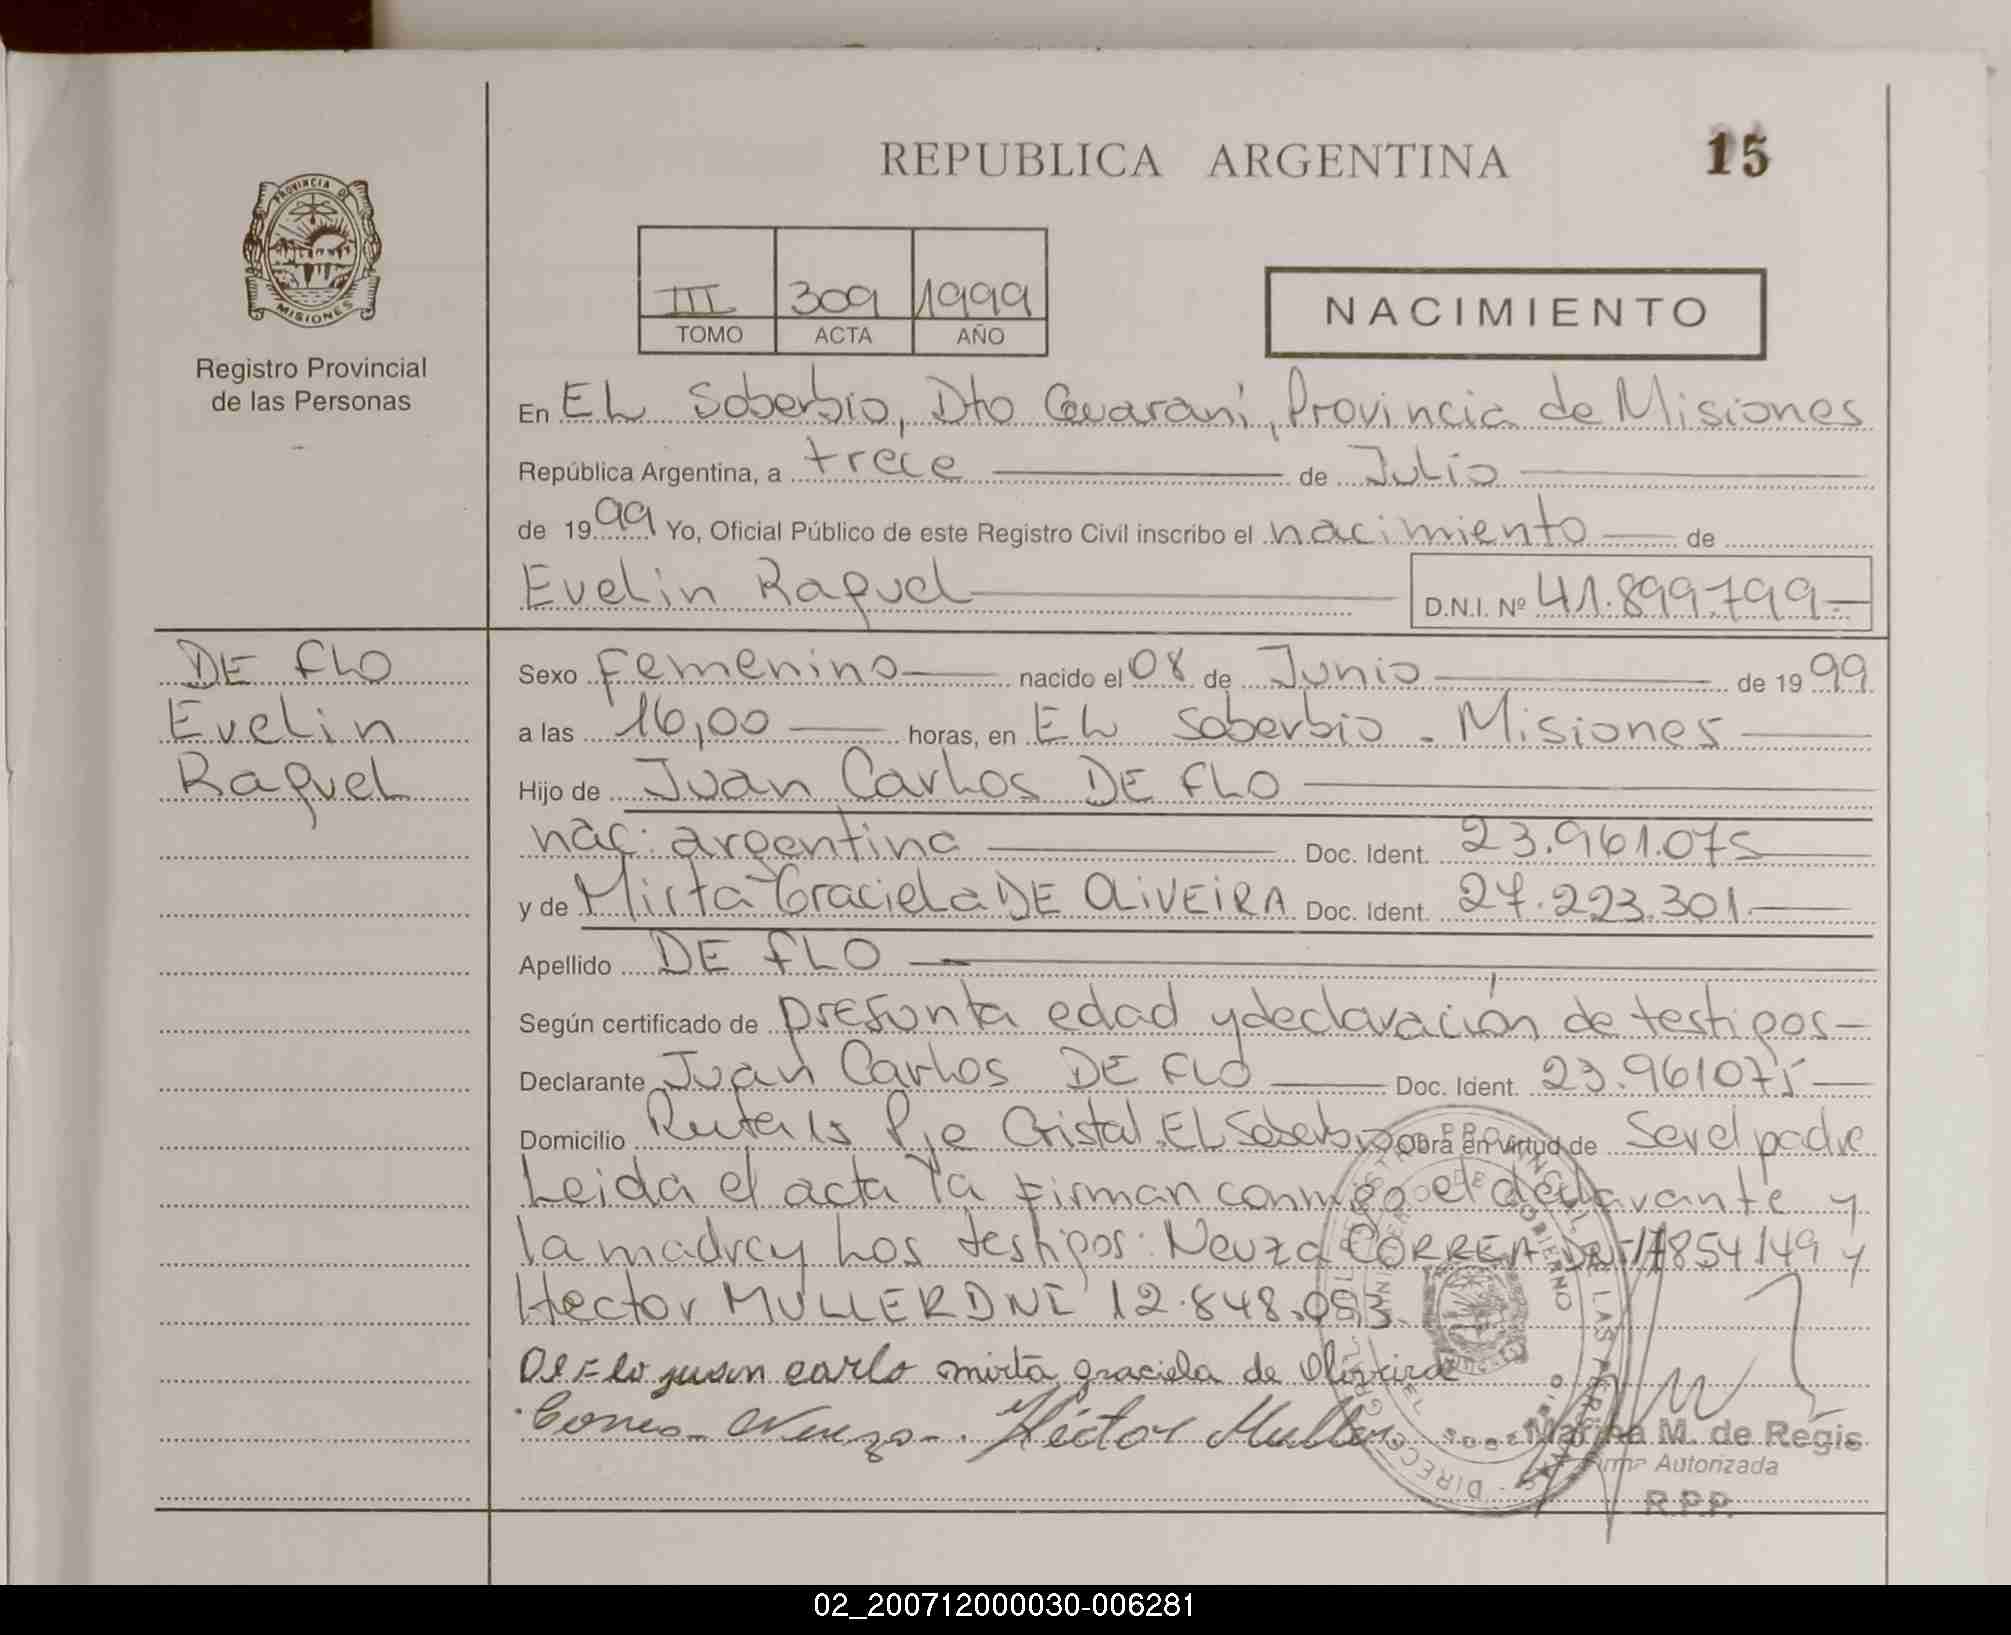 REPUBLICA ARGENTINA
15
PROVINCIA DE
MISIONES
Registro Provincial
de las Personas
III 309 1999
TOMO ACTA AÑO
NACIMIENTO
En EL Soberbio, Dto Guaraní, Provincia de Misiones
República Argentina, a trece de Julio
de 1999 Yo, Oficial Público de este Registro Civil inscribo el nacimiento de
Evelin Raquel D.N.I. Nº 41.899.799.-
DE FLO
Evelin
Raquel
Sexo Femenino nacido el 08 de Junio de 1999
a las 16,00 horas, en EL Soberbio - Misiones
Hijo de Juan Carlos DE FLO
nac: argentina Doc. Ident. 23.961.075
y de Mirta Graciela DE OLIVEIRA Doc. Ident. 27.223.301.
Apellido DE FLO
Según certificado de presunta edad y declaración de testigos-
Declarante Juan Carlos DE FLO Doc. Ident. 23.961075
Domicilio Ruta Pje Cristal. EL Soberbio Obra en virtud de Ser el padre
Leida el acta la firman conmigo el declarante y
la madre y los testigos: Neuza CORREA DNI 17854149 y
Hector MULLER DNI 12.848.053
De Flo juan carlo mirta graciela de Oliveira
Correa Neuza Héctor Muller
Marina M. de Regis
Firma Autorizada
R.P.P.
02_200712000030-006281